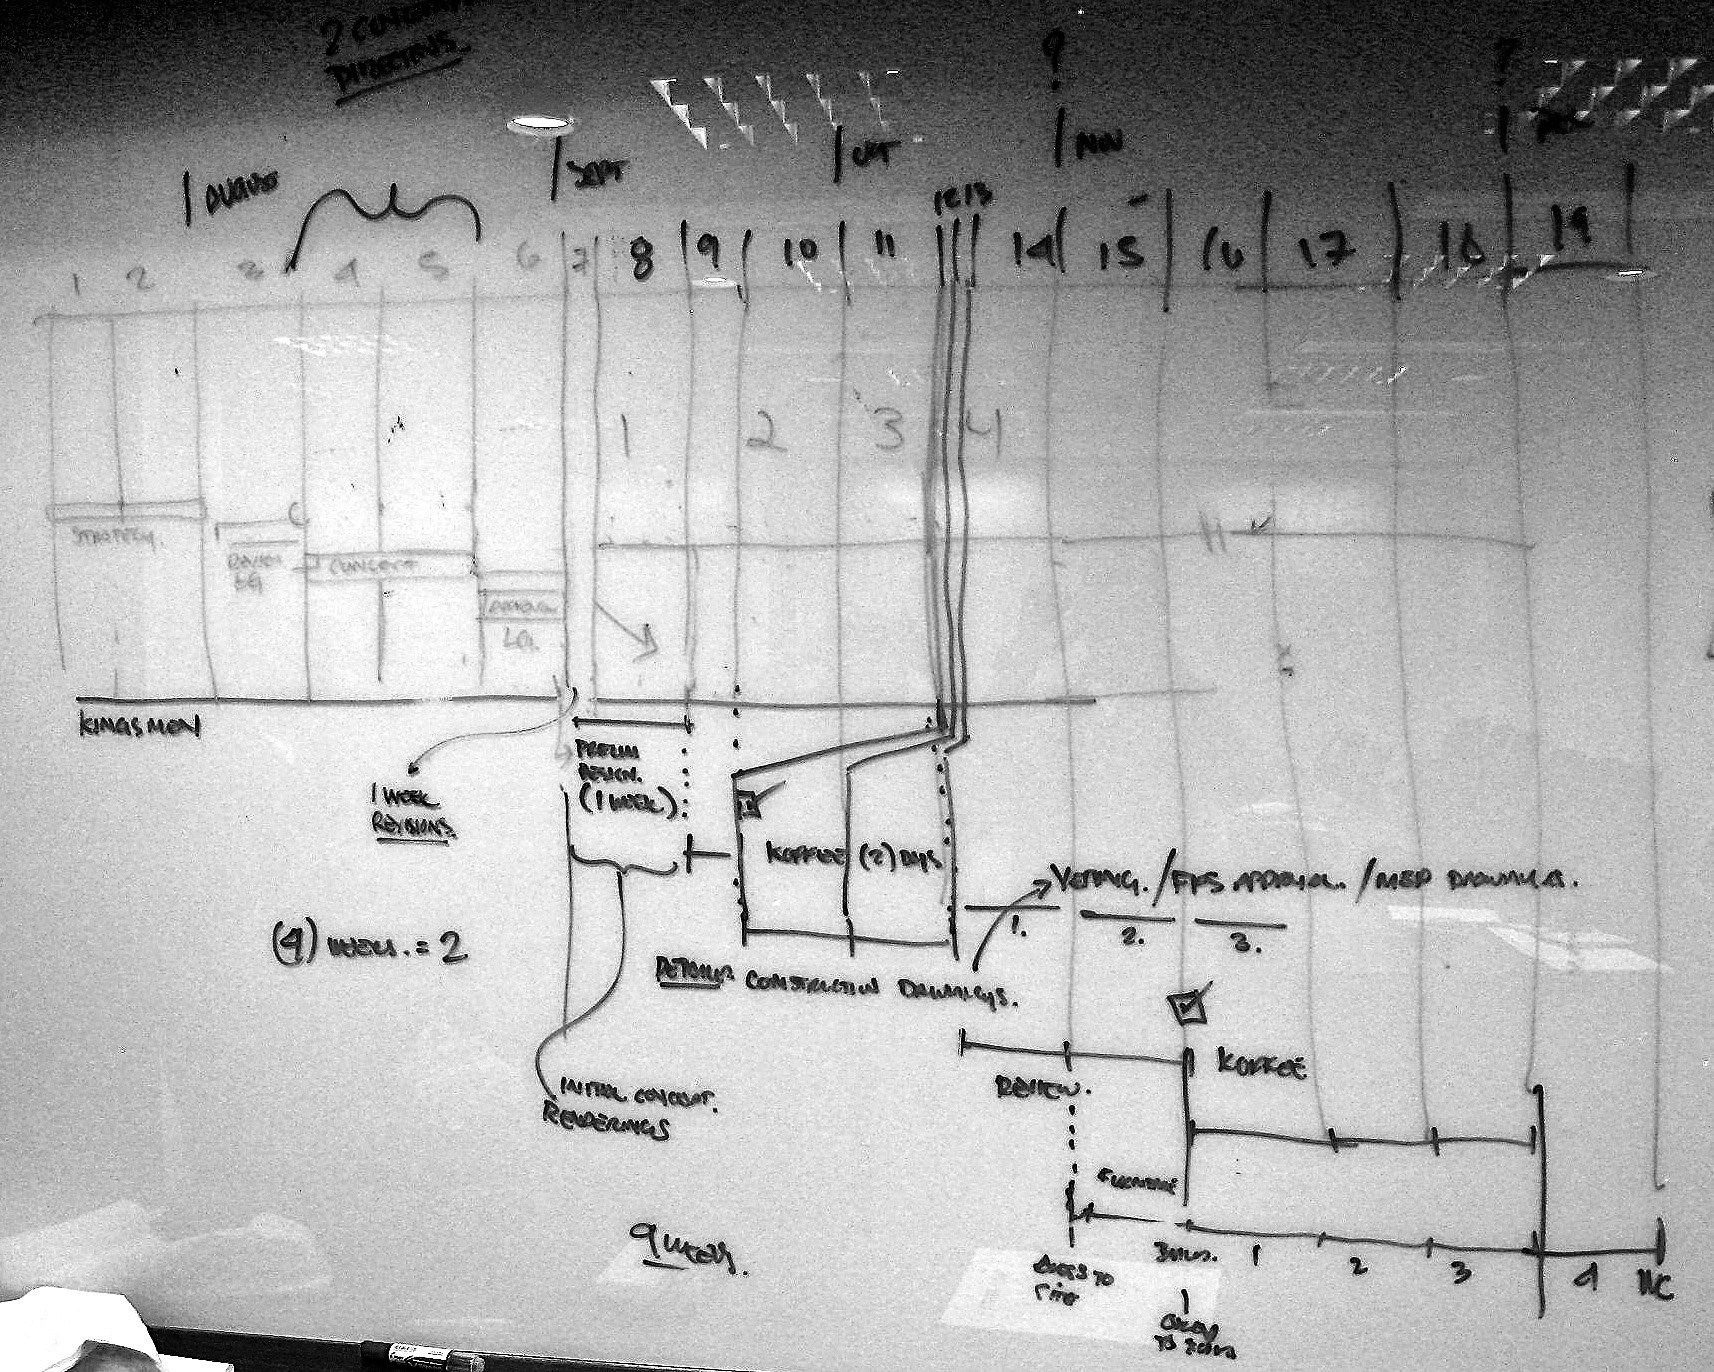 2
DIRECTIONS
?
?
AUGUST
SEPT
OCT
NOV
1 2 3 4 5 6 7 8 9 10 11 12 13 14 15 16 17 18 19
1 2 3 4
STRATEGY.
CONCEPT
KINGSMEN
1 WEEK
REVISIONS.
PRELIM
DESIGN.
(1 WEEK)
KOFFEE (2) DAYS
VETTING. / APPROVAL. / MEP DRAWINGS.
1. 2. 3.
(4) WEEKS. = 2
DETAILED CONSTRUCTION DRAWINGS.
KOFFEE
REVIEW.
INITIAL CONCEPT.
RENDERINGS
9 WEEKS.
BUILD. 1 2 3 4
ACCESS TO
SITE